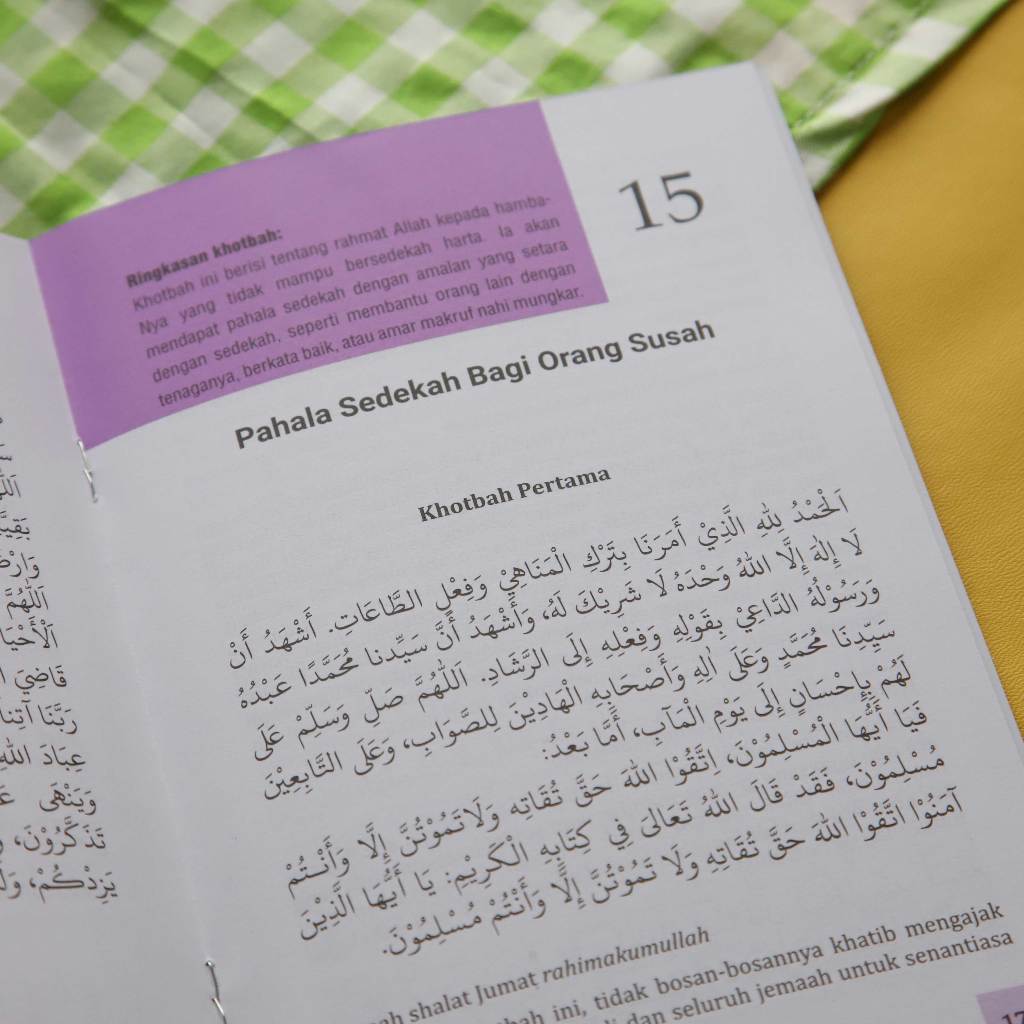 15
Ringkasan khotbah:
Khotbah ini berisi tentang rahmat Allah kepada hamba-
Nya yang tidak mampu bersedekah harta. Ia akan
mendapat pahala sedekah dengan amalan yang setara
dengan sedekah, seperti membantu orang lain dengan
tenaganya, berkata baik, atau amar makruf nahi mungkar.
Pahala Sedekah Bagi Orang Susah
Khotbah Pertama
اَلْحَمْدُ لِلهِ الَّذِيْ أَمَرَنَا بِتَرْكِ الْمَنَاهِيْ وَفِعْلِ الطَّاعَاتِ. أَشْهَدُ أَنْ
لَا إِلٰهَ إِلَّا اللهُ وَحْدَهُ لَا شَرِيْكَ لَهُ، وَأَشْهَدُ أَنَّ سَيِّدنا مُحَمَّدًا عَبْدُهُ
وَرَسُوْلُهُ الدَّاعِيْ بِقَوْلِهِ وَفِعْلِهِ إِلَى الرَّشَادِ. اَللّٰهُمَّ صَلِّ وَسَلِّمْ عَلَى
سَيِّدِنَا مُحَمَّدٍ وَعَلَى اٰلِهِ وَأَصْحَابِهِ الْهَادِيْنَ لِلصَّوَابِ، وَعَلَى التَّابِعِيْنَ
لَهُمْ بِإِحْسَانٍ إِلَى يَوْمِ الْمَآبِ، أَمَّا بَعْدُ:
فَيَا أَيُّهَا الْمُسْلِمُوْنَ، اِتَّقُوْا اللهَ حَقَّ تُقَاتِه وَلَاتَمُوْتُنَّ إِلَّا وَأَنْتُمْ
مُسْلِمُوْنَ، فَقَدْ قَالَ اللهُ تَعَالىَ فِي كِتَابِهِ الْكَرِيْمِ: يَا أَيُّهَا الَّذِيْنَ
آمَنُوْا اتَّقُوْا اللهَ حَقَّ تُقَاتِهِ وَلَا تَمُوْتُنَّ إِلَّا وَأَنْتُمْ مُسْلِمُوْنَ.
shalat Jumat rahimakumullah
ini, tidak bosan-bosannya khatib mengajak
dan seluruh jemaah untuk senantiasa
اَللّٰهُمَّ
قَاضِيَ
رَبَّنَا آتِنَا
عِبَادَ اللهِ
وَيَنْهَى
تَذَكَّرُوْنَ،
يَزِدْكُمْ،